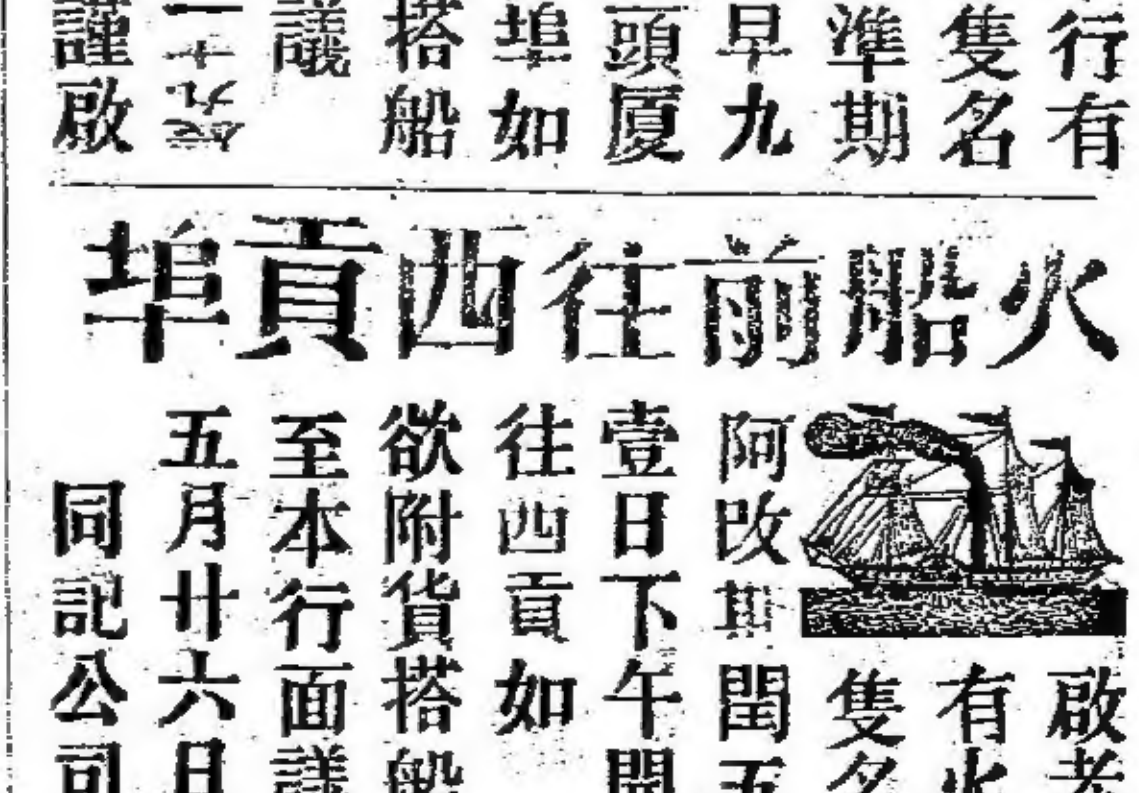 行有
隻名
準期
早九
頭厦
埠如
搭船
議
十九
謹啟
火船前往西貢埠
啟者
有火
隻名
阿改期閏五
壹日下午開
往西貢如
欲附貨搭船
至本行面議
五月廿六日
同記公司